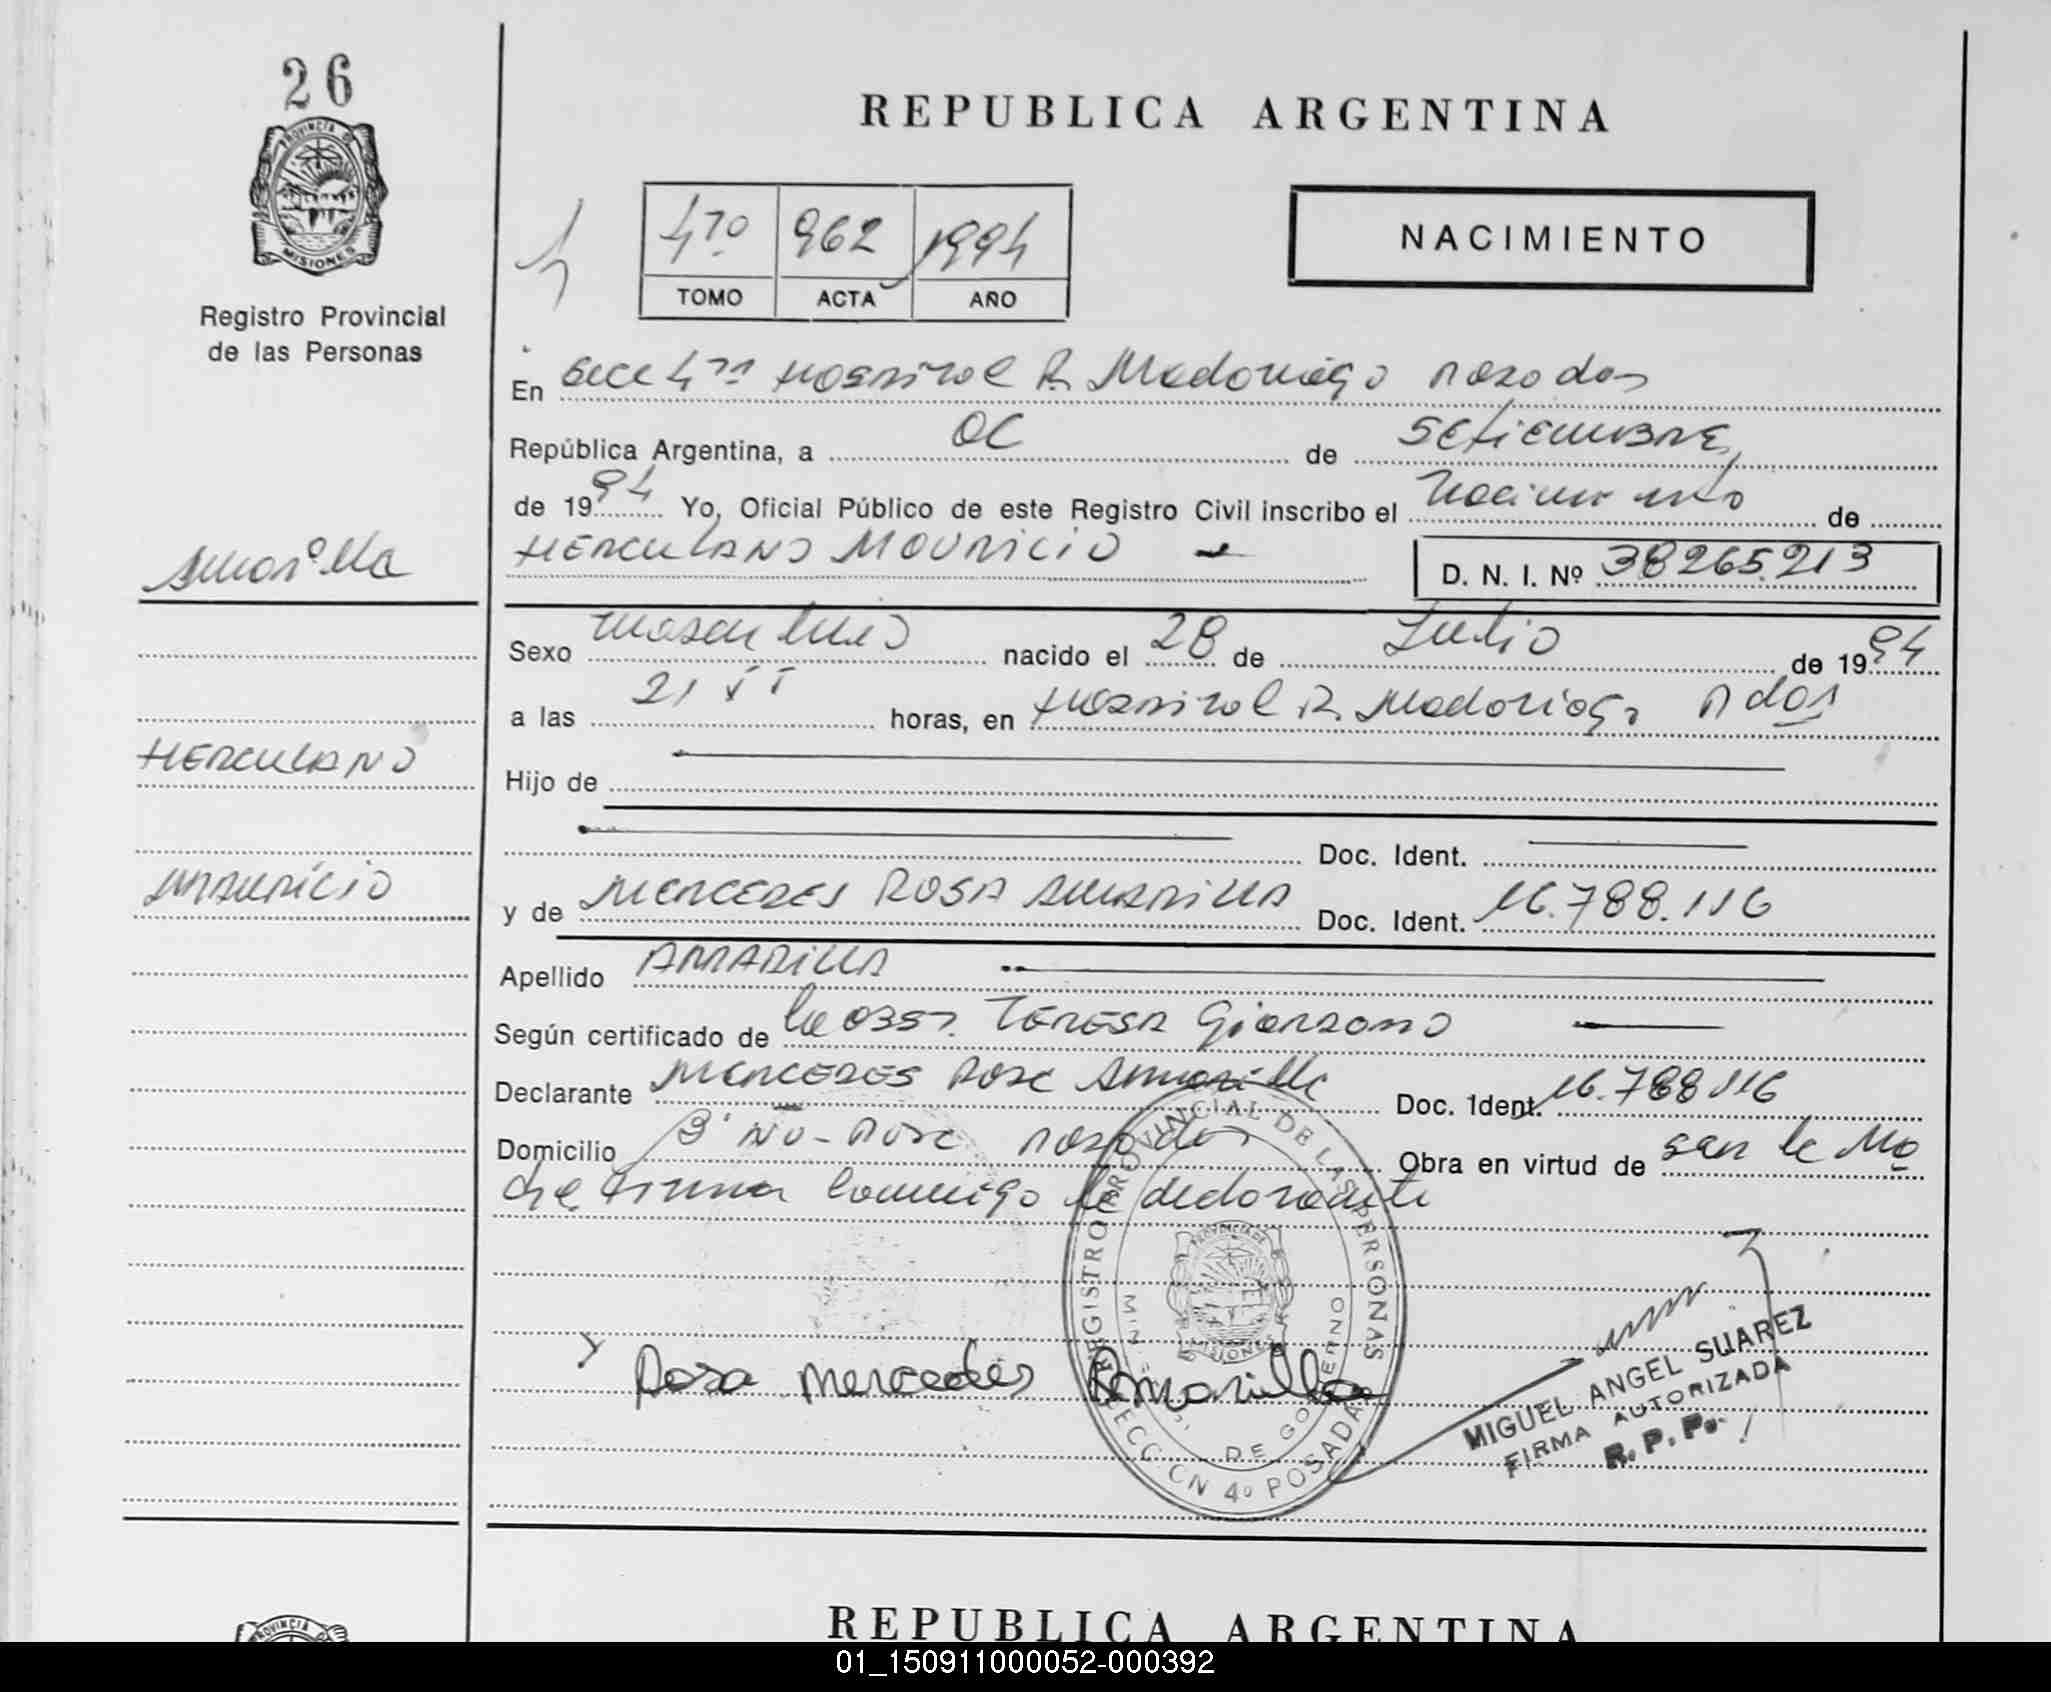 26
REPUBLICA ARGENTINA
PROVINCIA DE MISIONES
Registro Provincial
de las Personas
4to 962 1994
TOMO ACTA AÑO
NACIMIENTO
En Secc 4ta Hospital R. Madariaga Posadas
República Argentina, a 06 de Setiembre
de 1994 Yo, Oficial Público de este Registro Civil inscribo el Nacimiento de
HERCULANO MAURICIO D. N. I. Nº 38265.213
Amarilla
HERCULANO
MAURICIO
Sexo masculino nacido el 28 de Julio de 1994
a las 21 horas, en Hospital R. Madariaga Pdas
Hijo de
Doc. Ident.
y de MERCEDES ROSA AMARILLA Doc. Ident. 16.788.116
Apellido AMARILLA
Según certificado de TERESA Giordano
Declarante MERCEDES Rosa Amarilla Doc. Ident. 16.788.116
Domicilio Posadas Obra en virtud de ser la Ma
dre Firma conmigo la declarante
REGISTRO PROVINCIAL DE LAS PERSONAS
PROVINCIA DE MISIONES
DE GOBIERNO
SECCION 4º POSADAS
Rosa mercedes Amarilla
MIGUEL ANGEL SUAREZ
FIRMA AUTORIZADA
R. P. P.
REPUBLICA ARGENTINA
01_150911000052-000392